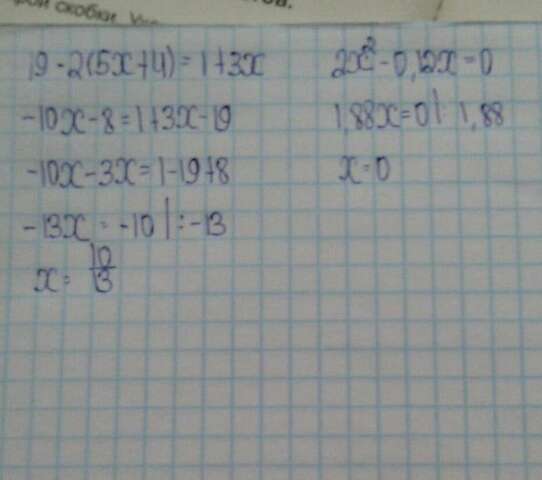 рой скобки
19 - 2(5x+4) = 1+3x
-10x-8=1+3x-19
-10x-3x=1-19+8
-13x = -10 | :-13
x = 10/13
2x² - 0,12x = 0
1,88x=0 | : 1,88
x=0